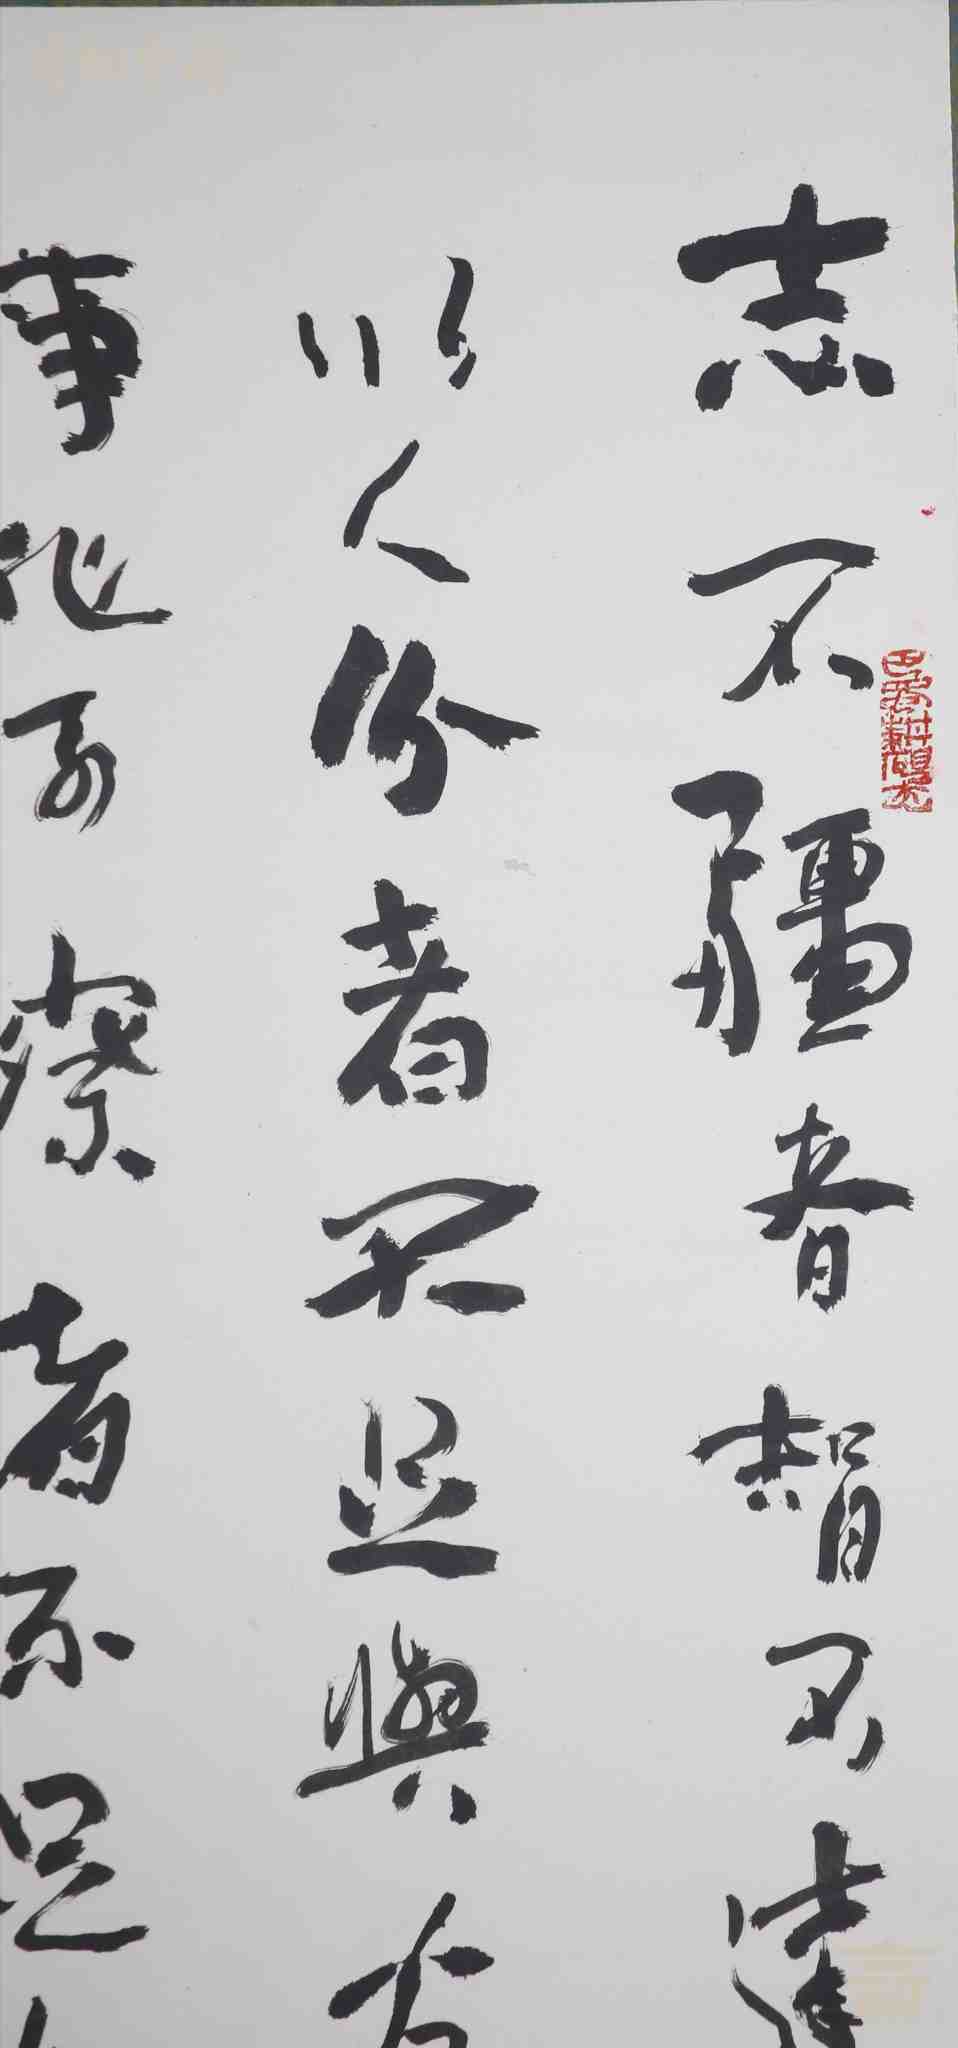 志不彊者智不達
以人份者不足與友
事非不察者不足